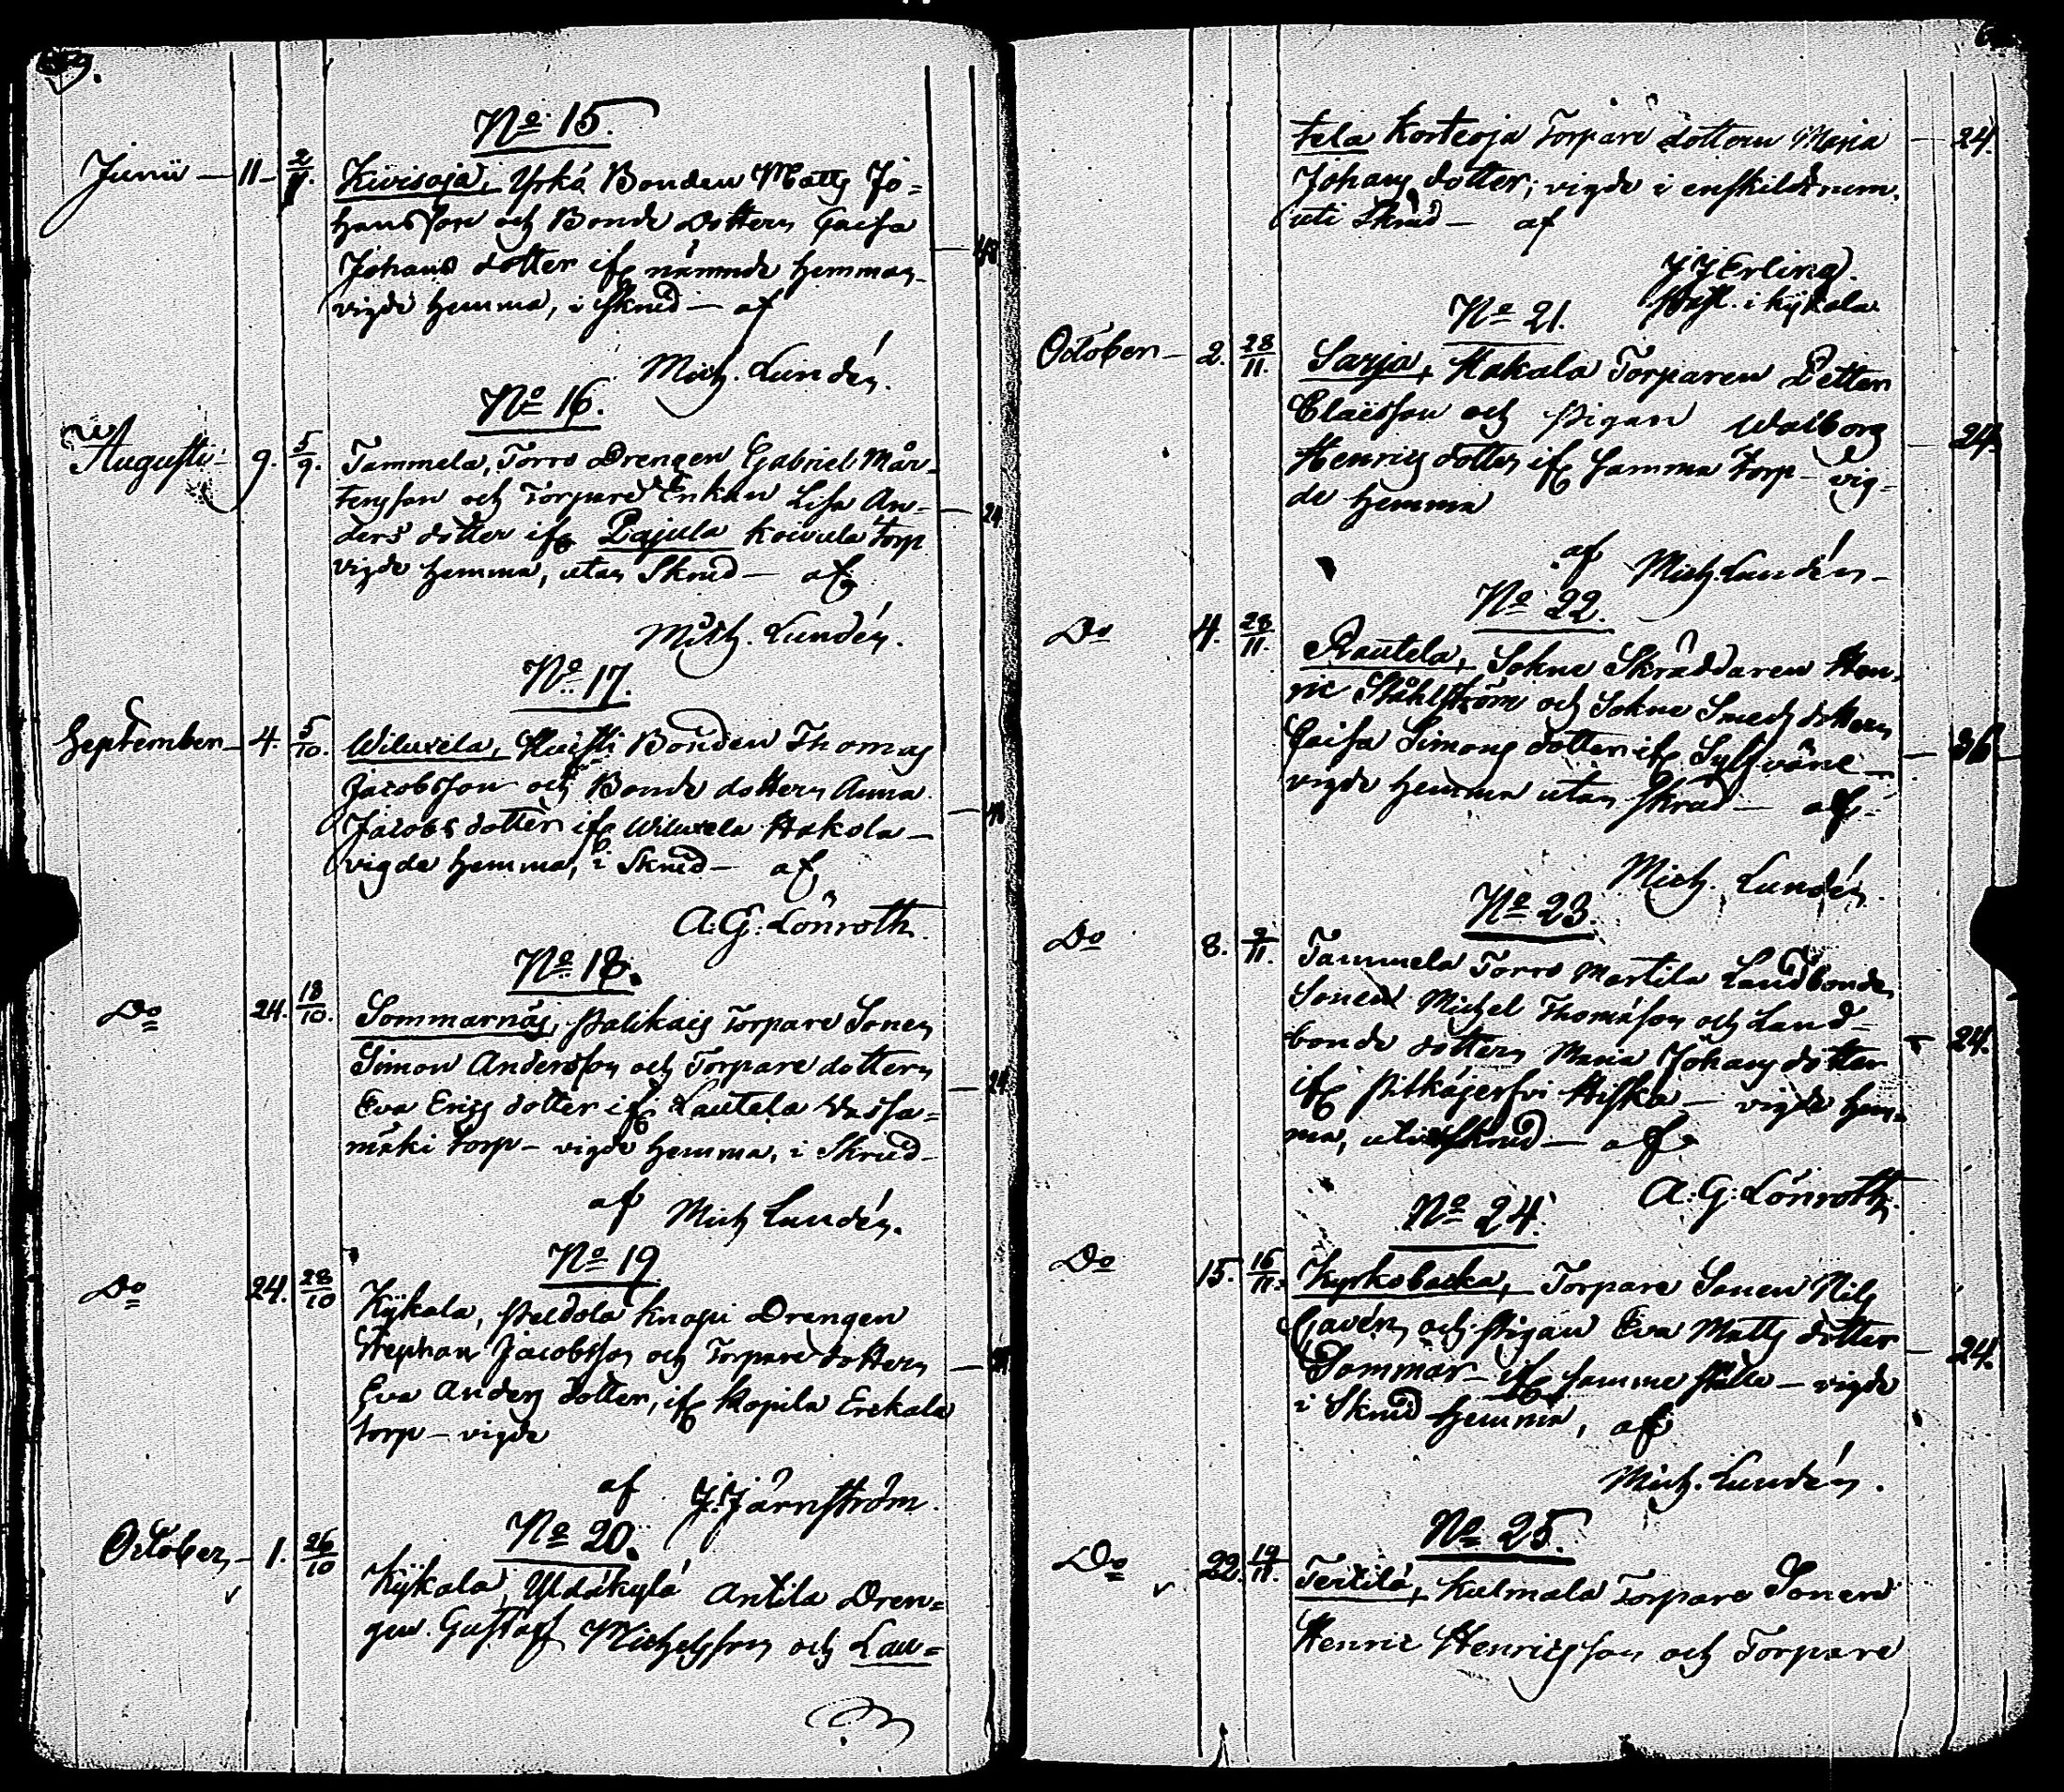 No 15.
Junii — 11 — 2/7. Kivisoja, Yrkä Bonden Matts Jo=
hansson och Bonde Dottern Caisa
Johans dotter ifr nämnde hemman 48
vigde hemma, i Skrud — af
Mich. Lundén.
No 16.
Augusti 9. 5/9. Tammela, Torro Drengen Gabriel Mår=
tensson och Torpare Enkan Lisa An= 24
ders dotter ifr Pajula Koivula torp
vigde hemma, utan Skrud — af
Mich. Lundén.
No 17.
September 4. 5/10. Wiluxela, Huisti Bonden Thomas
Jacobsson och Bonde dottern Anna
Jacobs dotter ifr Wiluxela Hakola — 48
vigde hemma, i Skrud — af
A:G: Lönroth.
No 18.
Do 24. 18/10. Sommarnäs, Palikais Torpare Sonen
Simon Andersson och Torpare dottern
Eva Erics dotter ifr Lautela Vassa= 24
mäki torp — vigde hemma, i Skrud —
af Mich Lundén.
No 19
Do 24. 28/10 Kykala, Peldola Knapi Drengen
Stephan Jacobsson och Torpare dottern
Eva Anders dotter, ifr Kopila Erekala
torp — vigde
af J. Järnström.
No 20.
October 1. 26/10 Kykala, Yldäkylä Antila Dren=
gen Gustaf Michelsson och Lau=
tela Korteoja Torpare dottern Maria 24.
Johans dotter; vigde i enskildt rum,
uti Skrud — af
J J Erling.
i Kykala
No 21.
October 2. 28/11. Sarja, Hakala Torparen Petter
Claësson och Pigan Walborg 24.
Henrics dotter ifr samma torp — vig=
de hemma
af Mich. Lundén —
No 22.
Do 4. 28/11. Rautela, Sokne Skräddaren Hen=
ric Ståhlström och Sokne Smeds dottern
Caisa Simons dotter ifr Sylfväne — 36
vigde hemma utan Skrud — af
Mich. Lundén.
No 23.
Do 8. 9/11. Tammela Torro Martila Landbonde
Sonen Michel Thomasson och Land=
bonde dottern Maria Johans dotter 24.
ifr Pitkäjerfvi Hiska — vigde hem=
ma, uti Skrud — af
A:G: Lönroth.
No 24.
Do 15. 16/11. Kyrkobacka, Torpare Sonen Nils
Cavén och Pigan Eva Matts dotter
Sommar — ifr samma ställe — vigde 24.
i Skrud hemma, af
Mich. Lundén.
No 25.
Do 22. 19/11. Tertilä, Kulmala Torpare Sonen
Henric Henricsson och Torpare